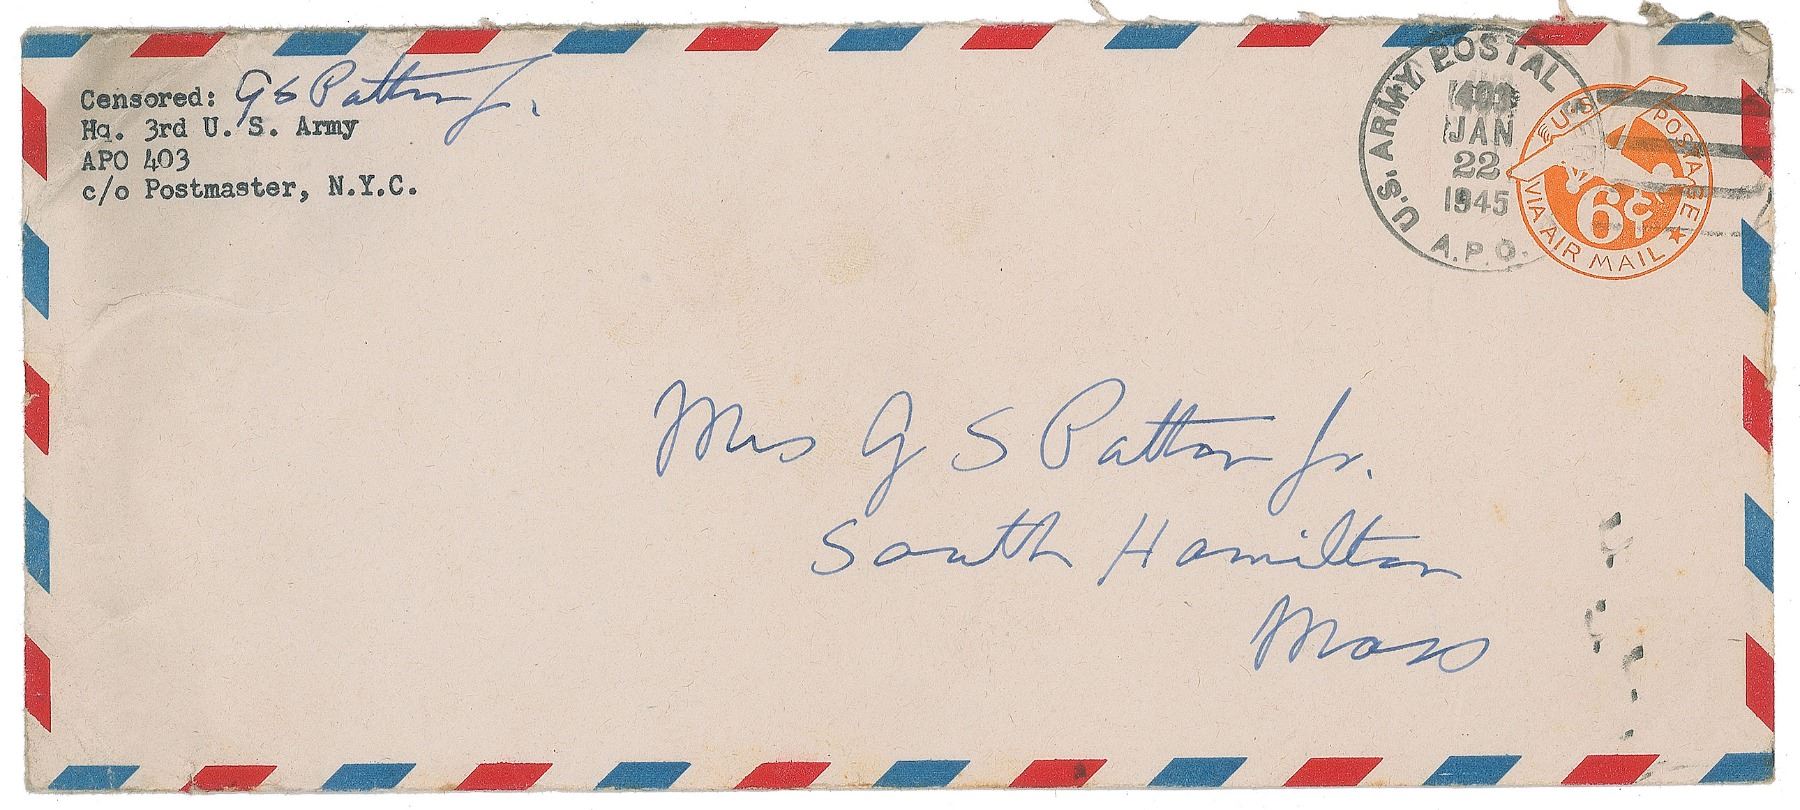 Censored: G S Patton Jr.
Hq. 3rd U. S. Army
APO 403
c/o Postmaster, N.Y.C.
U.S. ARMY POSTAL
403
JAN
22
1945
A.P.O.
U.S. POSTAGE
6¢
VIA AIR MAIL
Mrs G S Patton Jr.
South Hamilton
Mass